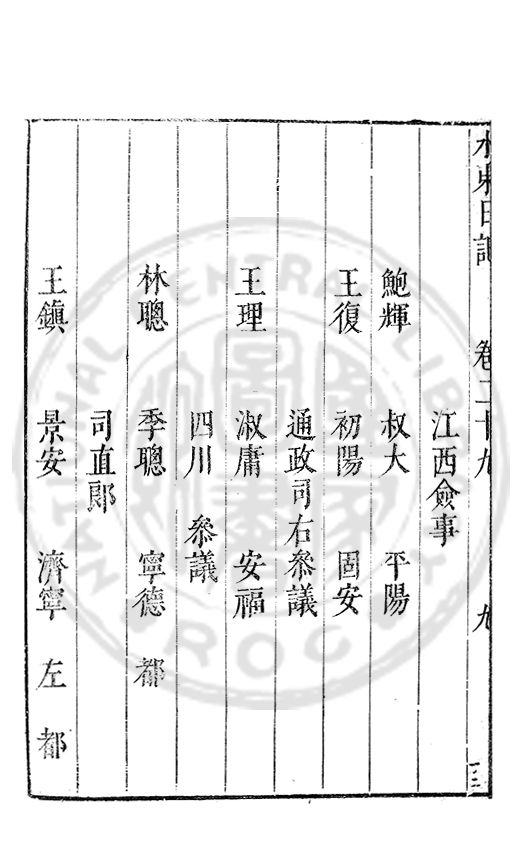 水東日記 卷二十九 九
江西僉事
鮑輝 叔大 平陽
王復 初陽 固安
通政司右叅議
王理 淑庸 安福
四川叅議
林聰 季聰 寧德 都
司直郎
王鎮 景安 濟寧 左都
NATIONAL CENTRAL LIBRARY